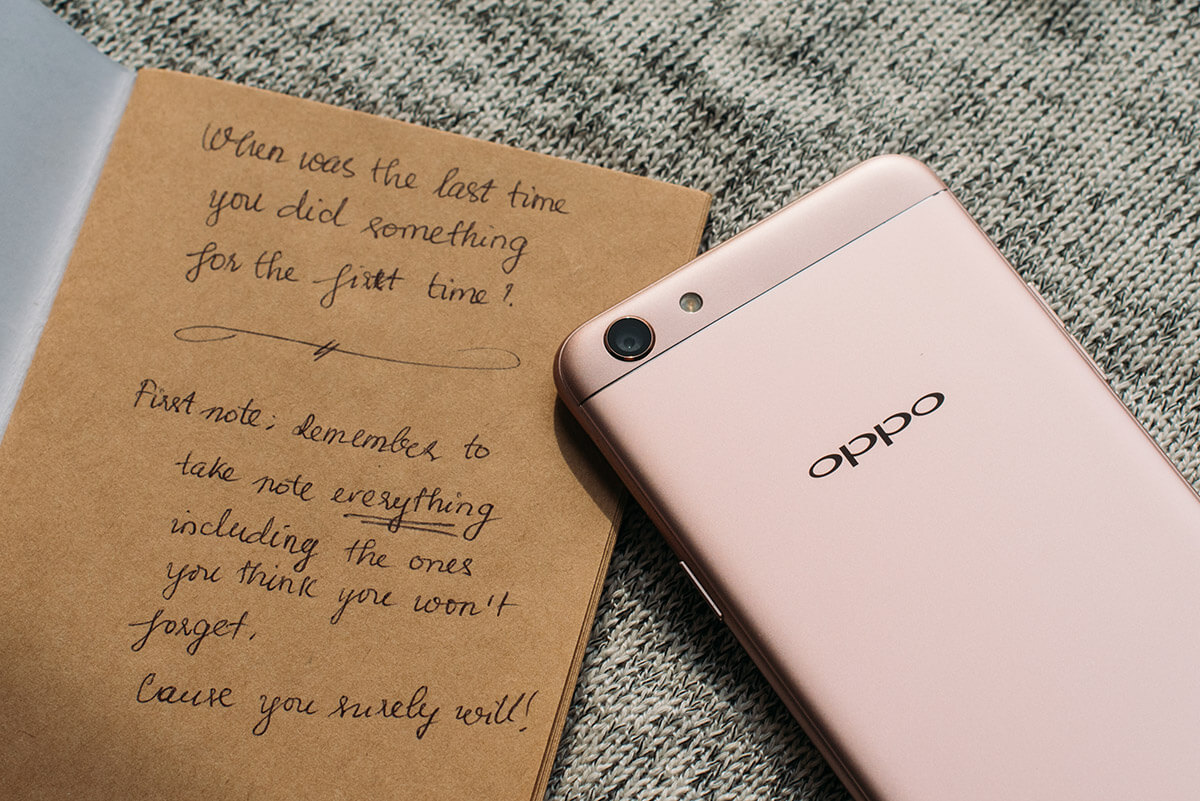 When was the last time
you did something
for the first time?
First note: remember to
take note everything
including the ones
you think you won't
forget.
Cause you surely will!
oppo